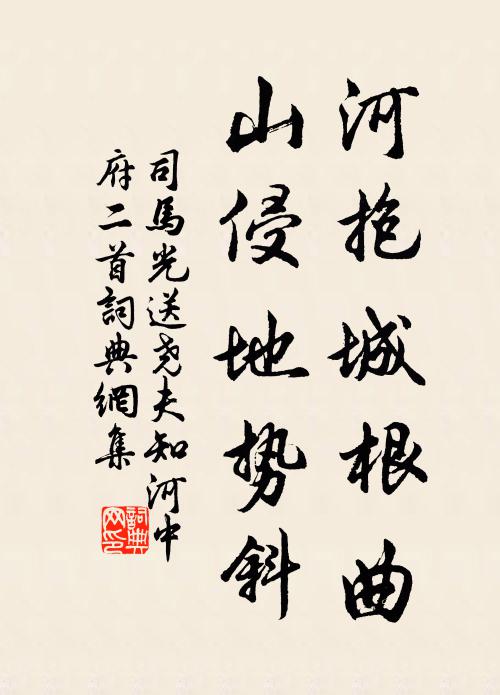 河抱城根曲
山侵地势斜
司馬光送尧夫知河中
府二首詞典網集
詞典
网印